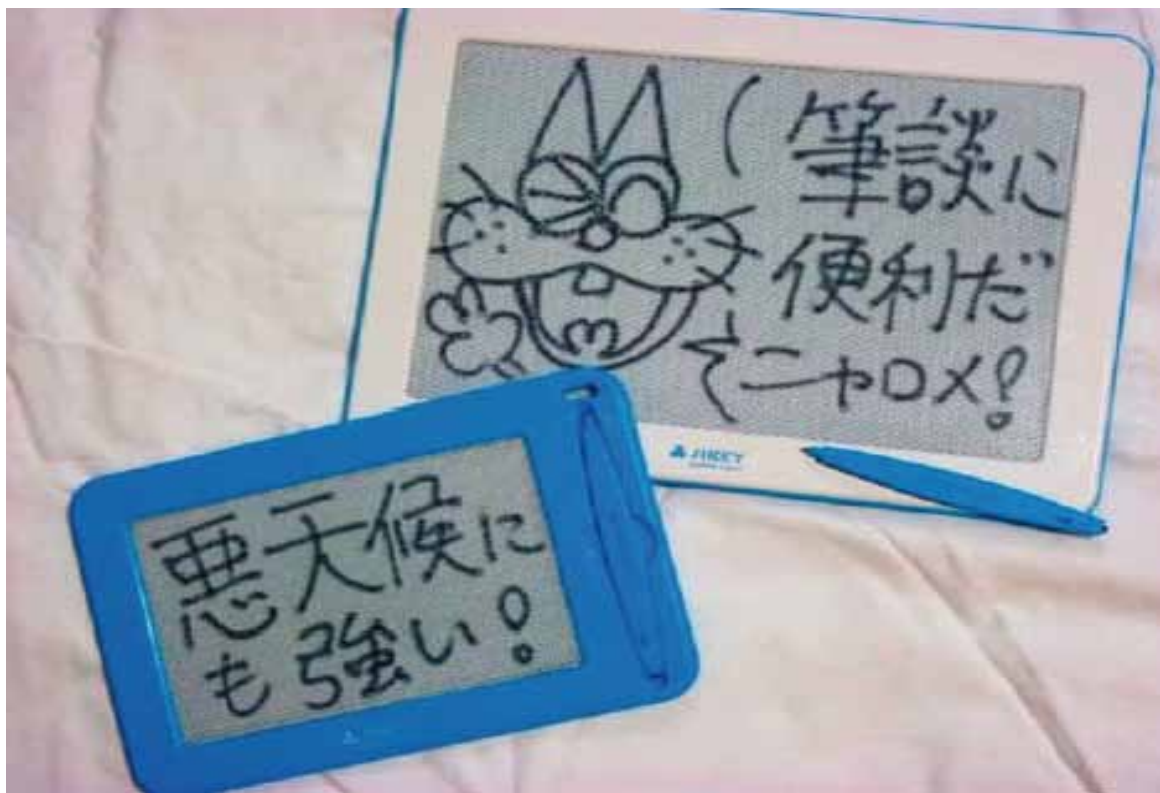 筆談に
便利だ
ぞニャロメ!
JIKEY
悪天候に
も強い!